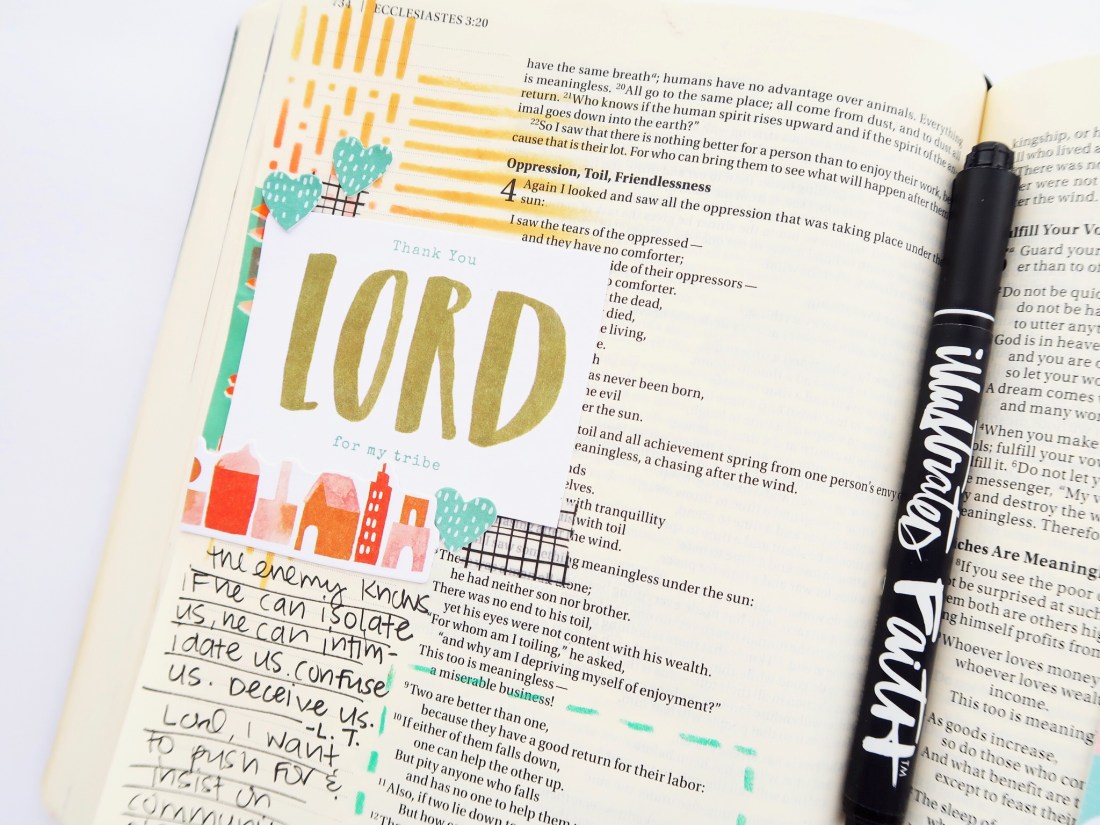 734 | ECCLESIASTES 3:20
have the same breath; humans have no advantage over animals. Everything
is meaningless. 20All go to the same place; all come from dust, and to dust all
return. 21Who knows if the human spirit rises upward and if the spirit of the
imal goes down into the earth?"
22So I saw that there is nothing better for a person than to enjoy their work,
cause that is their lot. For who can bring them to see what will happen after them
Oppression, Toil, Friendlessness
4 Again I looked and saw all the oppression that was taking place under the
sun:
I saw the tears of the oppressed—
and they have no comforter;
ide of their oppressors—
comforter.
the dead,
died,
living,
as never been born,
evil
er the sun.
toil and all achievement spring from one person's envy
eaningless, a chasing after the wind.
nds
elves.
with tranquillity
with toil
he wind.
meaningless under the sun:
he had neither son nor brother.
There was no end to his toil,
yet his eyes were not content with his wealth.
"For whom am I toiling," he asked,
"and why am I depriving myself of enjoyment?"
This too is meaningless—
a miserable business!
9Two are better than one,
because they have a good return for their labor:
10If either of them falls down,
one can help the other up.
But pity anyone who falls
and has no one to help them
11Also, if two lie down
But how
12
Thank You
LORD
for my tribe
the enemy knows
if he can isolate
us, he can intim-
idate us. confuse
us. Deceive us.
-L.T.
Lord, I want
to push for &
insist on
illustrated Faith™
kingship, or
ll who lived
There was no
er were not
er the wind.
ulfill Your Vo
Guard your
er than to of
Do not be quic
do not be ha
to utter anyt
God is in heave
and you are o
so let your wo
A dream comes
and many wor
4When you make
ols; fulfill your vow
lfill it. 6Do not let y
e messenger, "My
y and destroy the w
eaningless. Therefo
ches Are Meaningl
8If you see the poor
t be surprised at such
em both are others hig
ng himself profits from
Whoever loves money
whoever loves wealt
income.
This too is meaning
As goods increase,
so do those who con
And what benefit are
except to feast their
The sleep of